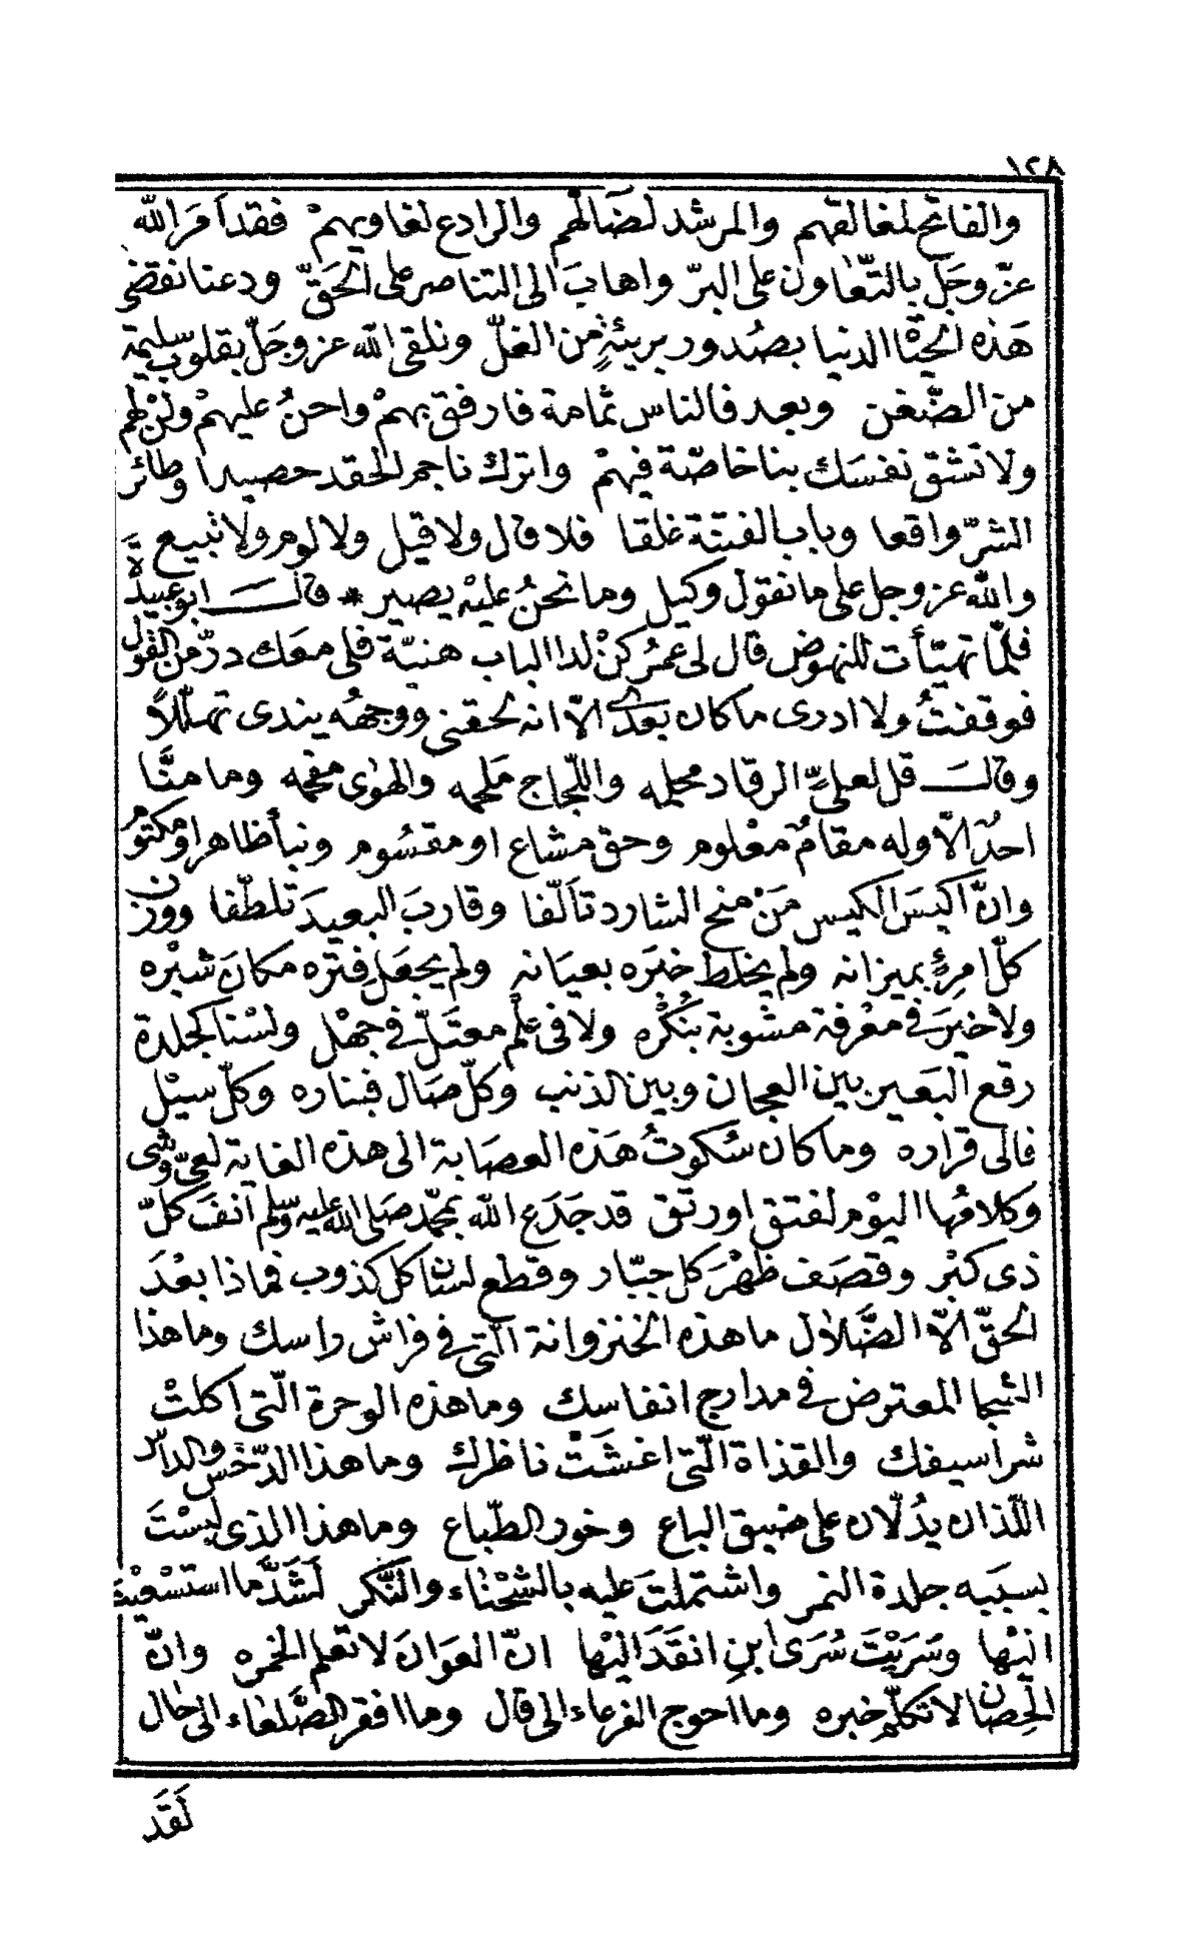 ١٢٨
والفاتح لمغالقهم والمرشد لضَالّهم والرادع لغاويهمْ فقد اَمَرَ الله
عزّ وجَلّ بالتّعاون على البرّ واهابَ الى التناصر على الحَقّ ودعنا نقضى
هَذه الحيٰاة الدنيا بصُدور بريئةٍ من الغلّ ونلقى الله عز وجَلّ بقلوب سليمة
من الضّغن وبعد فالناس ثمامة فارفق بهمْ واحنُ عليهمْ ولنْ لهم
ولا تشق نفسَك بنا خاصّة فيهمْ واترك ناجم الحقد حصيدا وطائر
الشرّ واقعا وباب الفتنة غلقا فلا قال ولا قيل ولا لوم ولا تبيع
والله عز وجل على ما نقول وكيل وما نحنُ عليْه بصير * قالــ ابو عبيدَة
فلمّا تهيّأت للنهوض قال لى عمرُ كنْ لدا الباب هنيّة فلى معَك درّ من القول
فوقفتُ ولا ادرى ما كان بعدى الّا انه لحقنى ووجهُه يندى تهلّلاً
وقالــَ قل لعلىٍّ الرقاد محلمه واللّجاج مَلحمه والهوٰى مقحمه وما منَّا
احدٌ الّا وله مقامٌ معْلوم وحق مشاع او مقسُوم ونبأ ظاهر او مكتوُم
وانّ اكيَسَ الكيس مَنْ منح الشارد تاَلّفا وقاربَ البعيدَ تلطّفا ووزن
كلّ امرءٍ بميزانه ولم يخلط خبَره بعيَانه ولم يجعَل فِتره مكانَ شبْره
ولا خيرَ فى معْرفة مشوبة بنُكْره ولا فى علْم معتَلّ فى جهْل ولسْنا كجلدة
رقع البَعير بين العجان وبين الذنب وكلّ صَال فبناره وكلّ سيْل
فالى قراره وما كان سُكوتُ هَذه العصَابة الى هذه الغاية لعىّ وشى
وكلامُها اليوْم لفتق او رتق قد جَدَع الله بمحمّد صَلى الله عليه وسَلم انفَ كلّ
ذى كبْر وقصَف ظهْرَ كل جبّار وقطع لسَان كل كذوب فماذا بعْدَ
الحقّ الّا الضَّلاٰل ما هذه الخنزوانة الّتى فى فراش راسك وما هذا
الشجا المعترض فى مدارج انفاسك وما هذه الوحرة الّتى اكلتْ
شراسيفك والقذاة الّتى اغشَتْ ناظرك وما هذا الدّخس والداس
اللّذان يدُلّان على ضيق الباع وخور الطّباع وما هذا الذى لبسْتَ
بسبَبه جلدة النمر واشتملتَ عليه بالشحْنٰاء والنَّكر لَشَدَّ ما استسْعيْت
اليْها وسَرَيْتَ سُرَى ابنِ انقَدَ اليْها انّ العَوَانَ لا تعَلم الخمره وانّ
الحِصَان لا تكلّم خبره وما احوج الفرعاء الى قال وما افقر الصَّلعاء الى حٰال
لَقَد